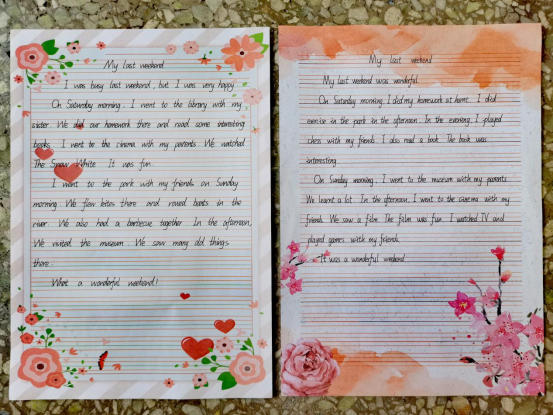 My last weekend
I was busy last weekend, but I was very happy.
On Saturday morning, I went to the library with my
sister. We did our homework there and read some interesting
books. I went to the cinema with my parents. We watched
The Snow White. It was fun.
I went to the park with my friends on Sunday
morning. We flew kites there and rowed boats in the
river. We also had a barbecue together. In the afternoon,
We visited the museum. We saw many old things
there.
What a wonderful weekend!
My last weekend
My last weekend was wonderful.
On Saturday morning, I did my homework at home. I did
exercise in the park in the afternoon. In the evening, I played
chess with my friends. I also read a book. The book was
interesting.
On Sunday morning, I went to the museum with my parents.
We learnt a lot. In the afternoon, I went to the cinema with my
friends. We saw a film. The film was fun. I watched TV and
played games with my friends.
It was a wonderful weekend.